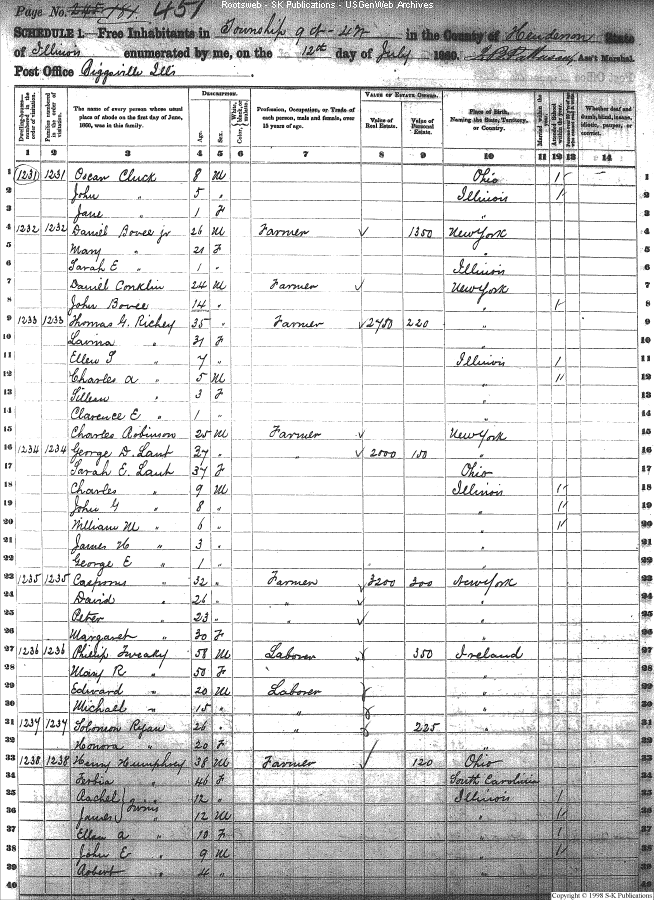 Rootsweb - SK Publications - USGenWeb Archives
Page No. 245 181. 451
SCHEDULE 1.—Free Inhabitants in Township 9 N - 4 W in the County of Henderson State
of Illinois enumerated by me, on the 12th day of July 1860. Ass't Marshal.
Post Office Biggsville Ills
Dwelling-houses—numbered in the order of visitation.
Families numbered in the order of visitation.
The name of every person whose usual place of abode on the first day of June, 1860, was in this family.
DESCRIPTION.
Age.
Sex.
Color, White, black, or mulatto.
Profession, Occupation, or Trade of each person, male and female, over 15 years of age.
VALUE OF ESTATE OWNED.
Value of Real Estate.
Value of Personal Estate.
Place of Birth, Naming the State, Territory, or Country.
Married within the year.
Attended School within the year.
Whether deaf and dumb, blind, insane, idiotic, pauper, or convict.
1 2 3 4 5 6 7 8 9 10 11 12 13 14
1 1231 1231 Oscar Cluck 8 M Ohio 1 1
2 John " 5 " Illinois 1 2
3 Jane " 1 F " 3
4 1232 1232 Daniel Bovee jr 26 M Farmer 1350 New York 4
5 Mary " 21 F " 5
6 Sarah E " 1 " Illinois 6
7 Daniel Conklin 24 M Farmer New York 7
8 John Bovee 14 " " 1 8
9 1233 1233 Thomas G. Richey 35 " Farmer 2750 220 " 9
10 Lavina " 31 F " 10
11 Ellen S " 7 " Illinois 1 11
12 Charles A " 5 M " 1 12
13 " 3 F " 13
14 Clarence E " 1 " " 14
15 Charles Robinson 25 M Farmer New York 15
16 1234 1234 George D. Laut 37 " " 2000 150 " 16
17 Sarah E. Laut 37 F Ohio 17
18 Charles " 9 M Illinois 1 18
19 John G " 8 " " 1 19
20 William M " 6 " " 1 20
21 James H " 3 " " 21
22 George E " 1 " " 22
23 1235 1235 " 32 " Farmer 3200 300 New York 23
24 David " 26 " " " 24
25 Peter " 23 " " " 25
26 Margaret " 30 F " 26
27 1236 1236 Phillip 58 M Laborer 350 Ireland 27
28 Mary R " 50 F " 28
29 Edward " 20 M Laborer " 29
30 Michael " 15 " " " 30
31 1237 1237 Solomon Ryan 26 " " 225 " 31
32 Honora " 20 F " 32
33 1238 1238 Henry Humphrey 38 M Farmer 120 Ohio 33
34 " 46 F South Carolina 34
35 Rachel } Twins 12 " Illinois 1 35
36 James 12 M " 1 36
37 Ellen A " 10 F " 1 37
38 John E " 9 M " 1 38
39 Robert " 4 " " 39
40 40
Copyright © 1998 S-K Publications